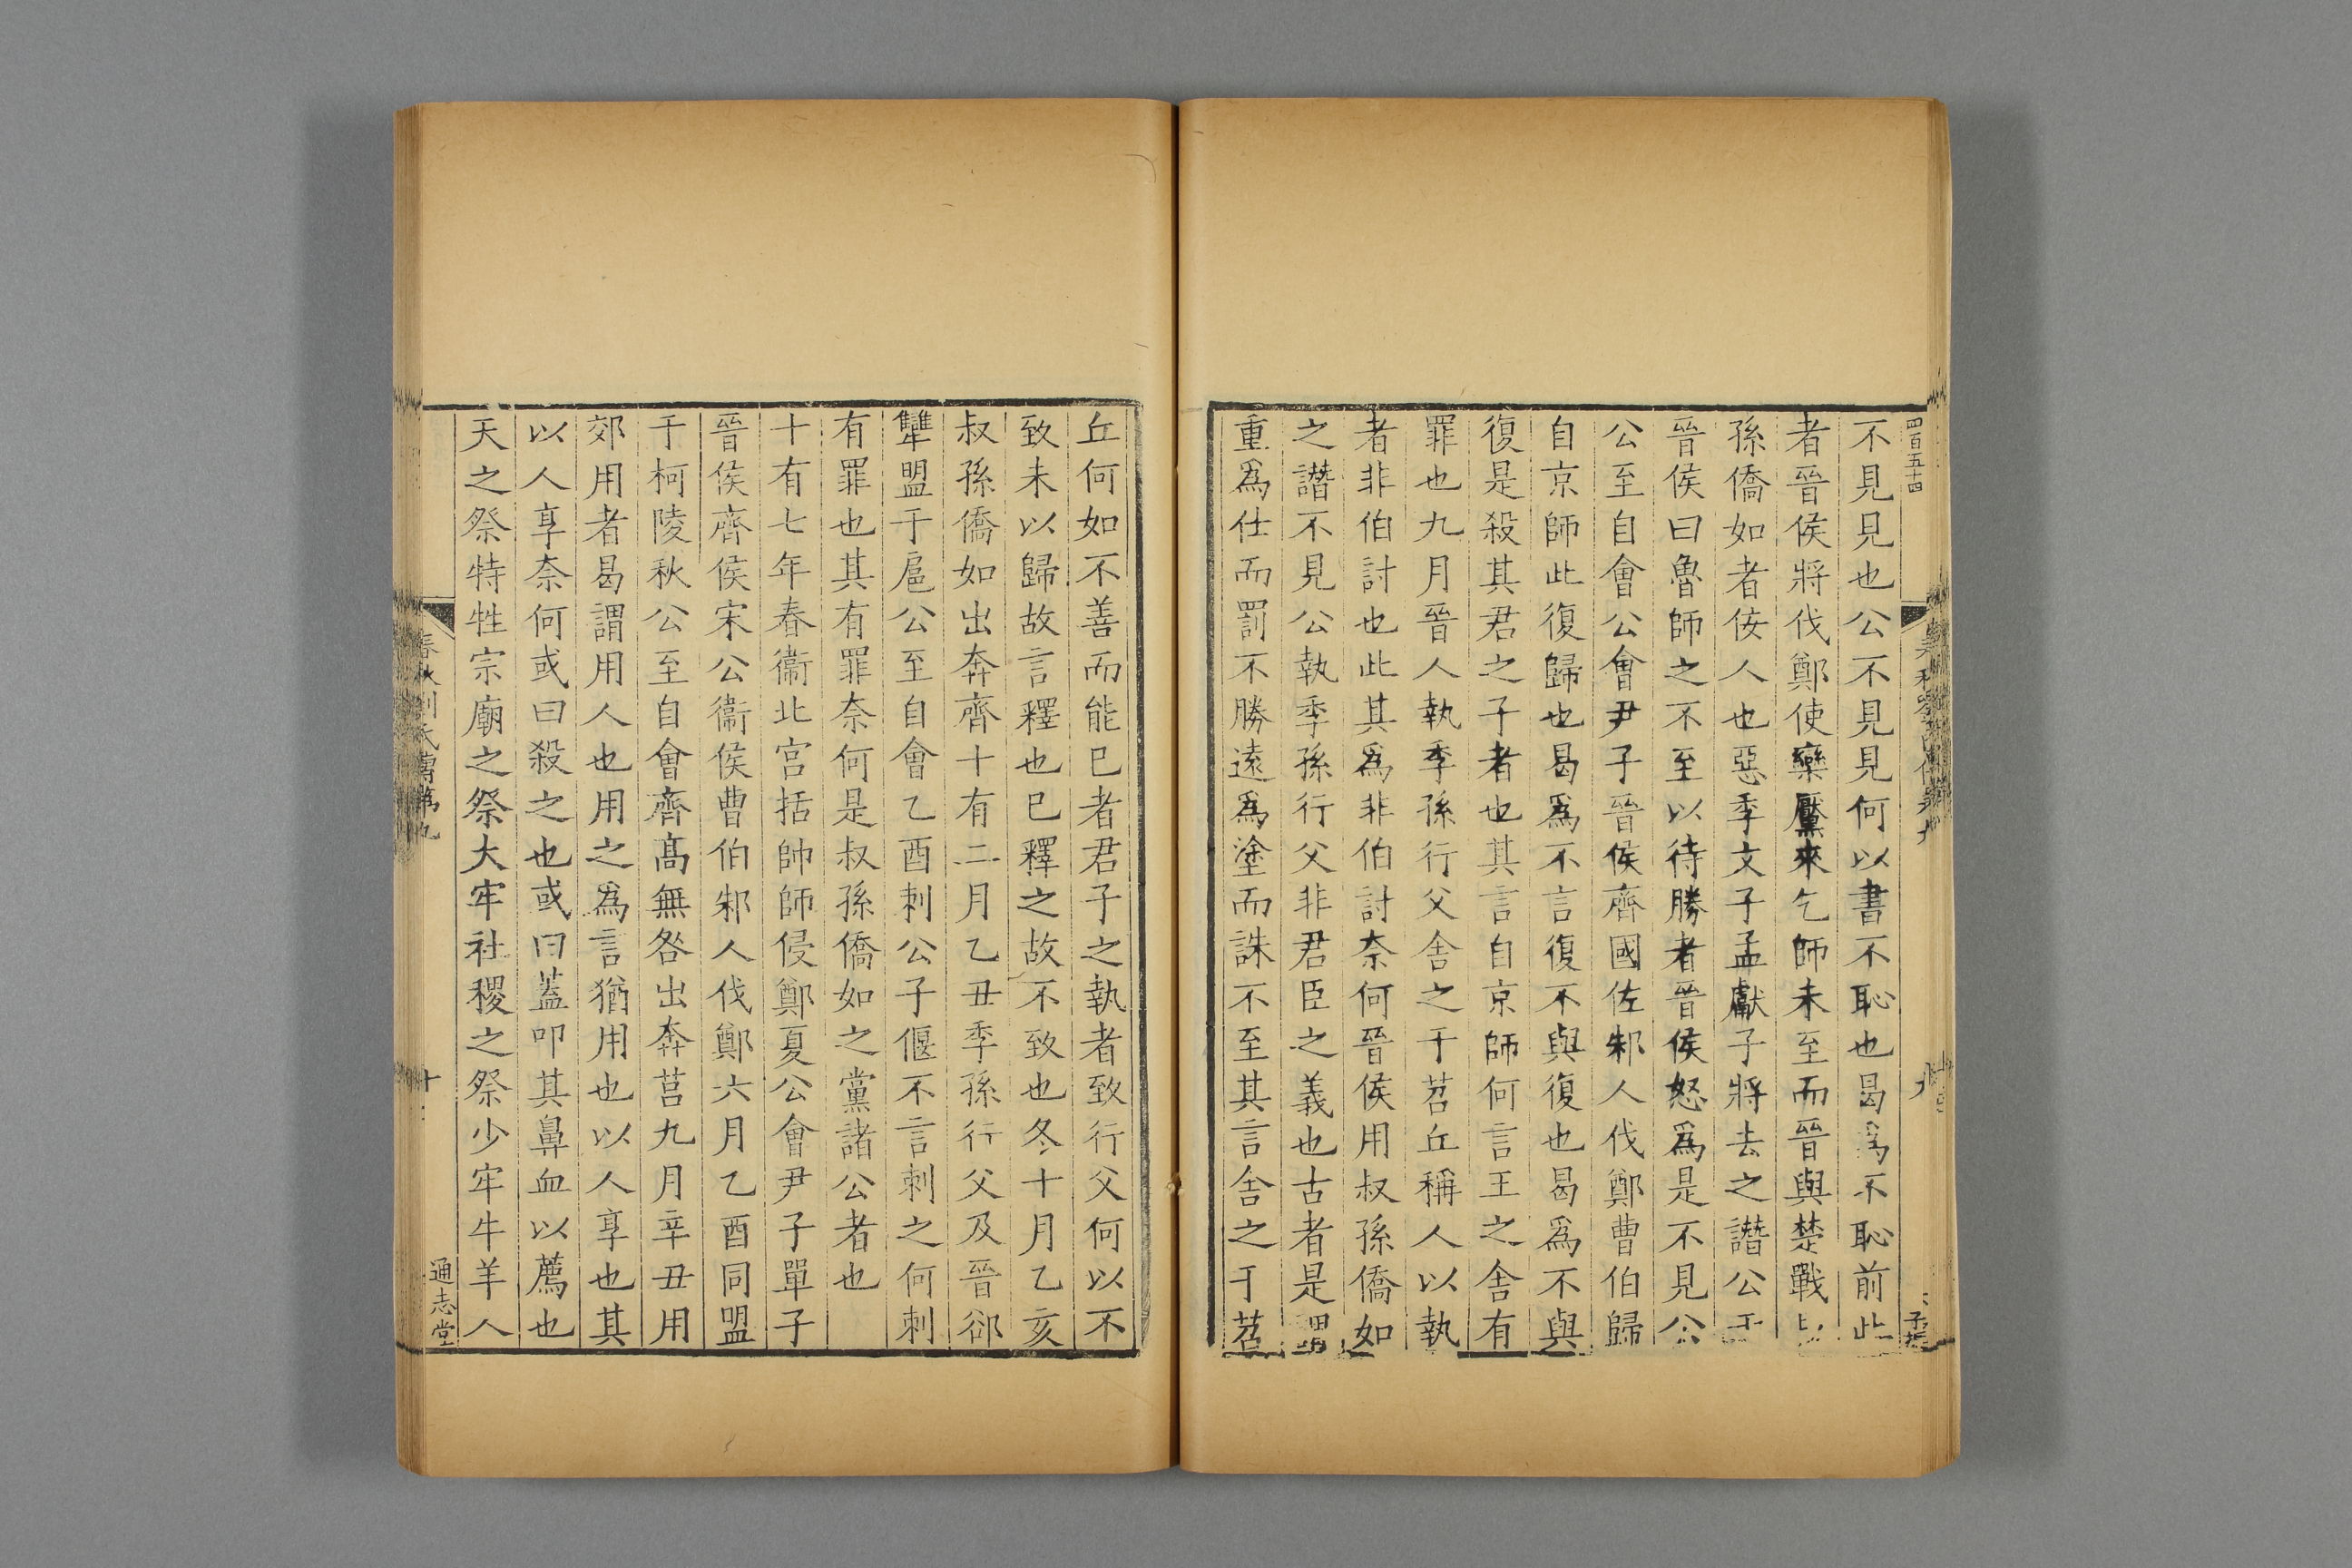 四百五十四
不見見也公不見見何以書不恥也曷爲不恥前此
者晉侯將伐鄭使欒黶來乞師未至而晉與楚戰
孫僑如者佞人也惡季文子孟獻子將去之譖公于
晉侯曰魯師之不至以待勝者晉侯怒爲是不見公
公至自會公會尹子晉侯齊國佐邾人伐鄭曹伯歸
自京師此復歸也曷爲不言復不與復也曷爲不與
復是殺其君之子者也其言自京師何言王之舍有
罪也九月晉人執季孫行父舍之于苕丘稱人以執
者非伯討也此其爲非伯討奈何晉侯用叔孫僑如
之譖不見公執季孫行父非君臣之義也古者是謂
重爲仕而罰不勝遠爲塗而誅不至其言舍之于苕
丘何如不善而能已者君子之執者致行父何以不
致未以歸故言釋也已釋之故不致也冬十月乙亥
叔孫僑如出奔齊十有二月乙丑季孫行父及晉郤
犫盟于扈公至自會乙酉刺公子偃不言刺之何刺
有罪也其有罪奈何是叔孫僑如之黨諸公者也
十有七年春衞北宮括帥師侵鄭夏公會尹子單子
晉侯齊侯宋公衞侯曹伯邾人伐鄭六月乙酉同盟
于柯陵秋公至自會齊髙無咎出奔莒九月辛丑用
郊用者曷謂用人也用之爲言猶用也以人享也其
以人享奈何或曰殺之也或曰蓋叩其鼻血以薦也
天之祭特牲宗廟之祭大牢社稷之祭少牢牛羊人
春秋劉氏傳第九
十
通志堂